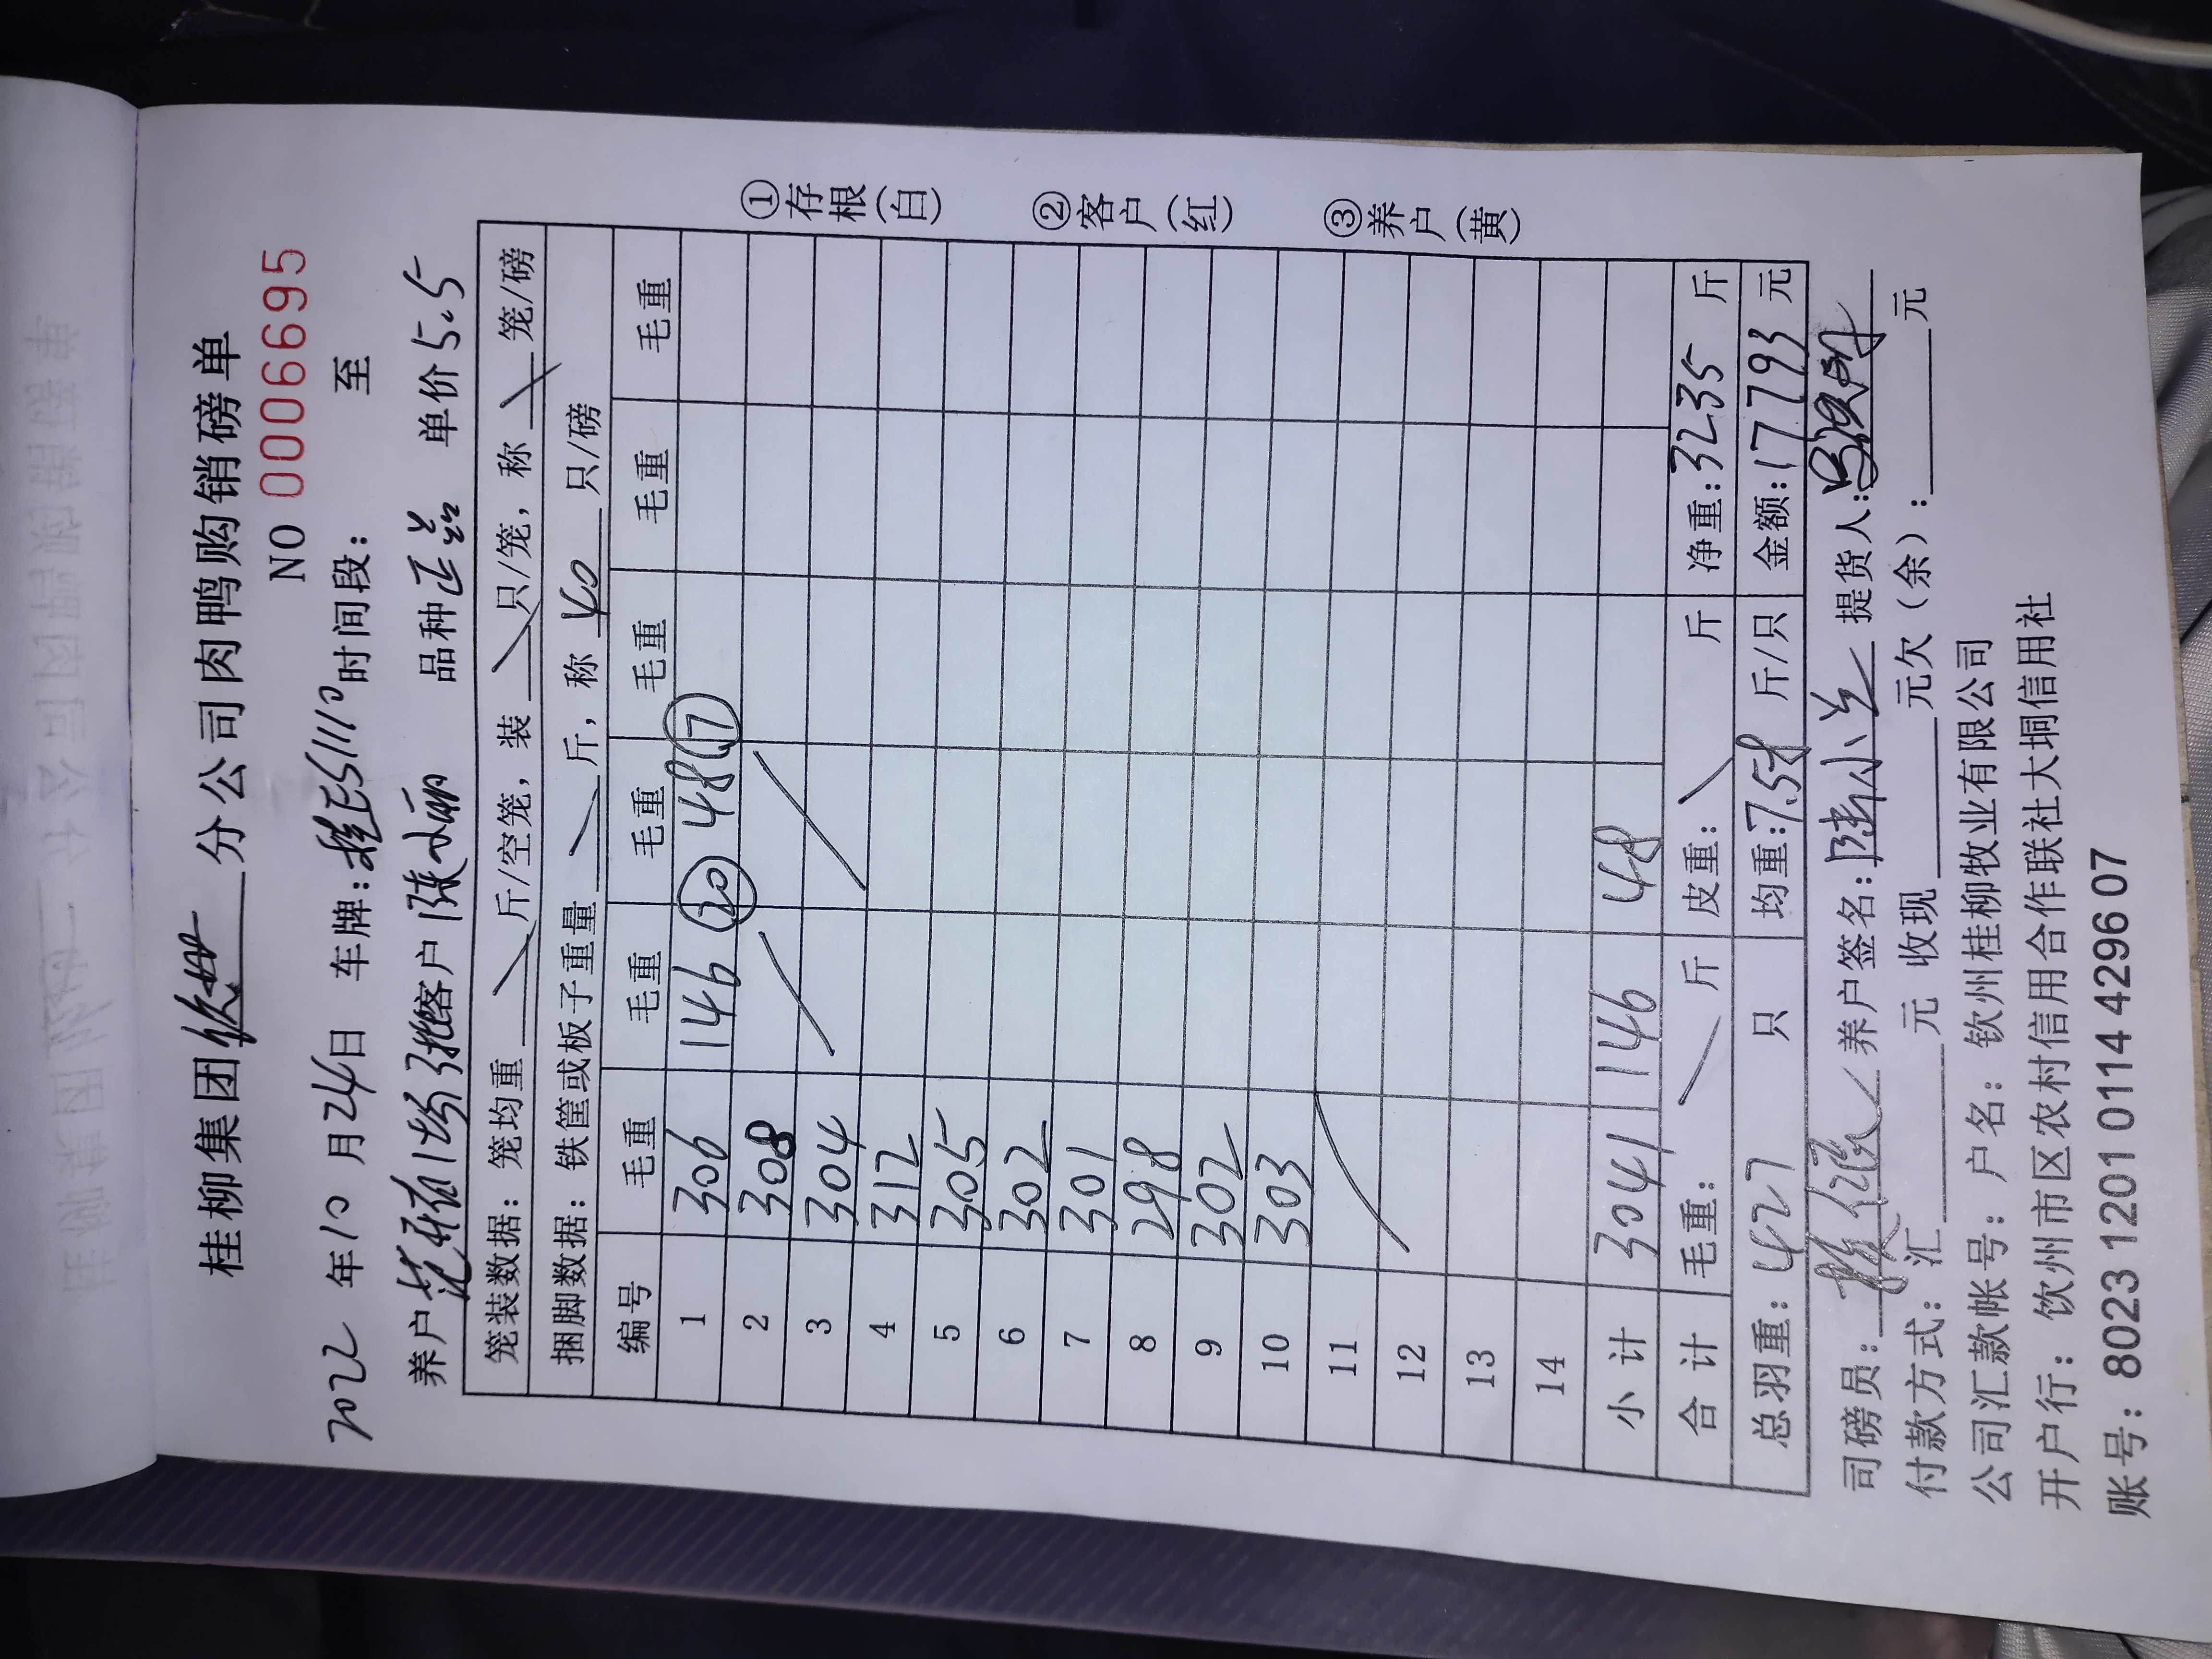 桂柳集团 分公司肉鸭购销磅单
NO 0006695
2022 年10月24日 车牌:桂E51110 时间段: 至
养户 客户 陈小丽 品种 正品 单价 5.5
笼装数据:笼均重 斤/空笼,装 只/笼,称 笼/磅
捆脚数据:铁筐或板子重量 斤,称 40 只/磅
编号 毛重 毛重 毛重 毛重 毛重 毛重
1 306 146 (20) 48 (7)
2 308
3 304
4 312
5 305
6 302
7 301
8 298
9 302
10 303
11
12
13
14
小计 3041 146 48
合计 毛重: 斤 皮重: 斤 净重:3235 斤
总羽重:427 只 均重:7.58 斤/只 金额:17793 元
①存根(白)
②客户(红)
③养户(黄)
司磅员: 养户签名: 提货人:
付款方式:汇 元 收现 元欠(余): 元
公司汇款帐号:户名:钦州桂柳牧业有限公司
开户行:钦州市区农村信用合作联社大垌信用社
账号:8023 1201 0114 4296 07